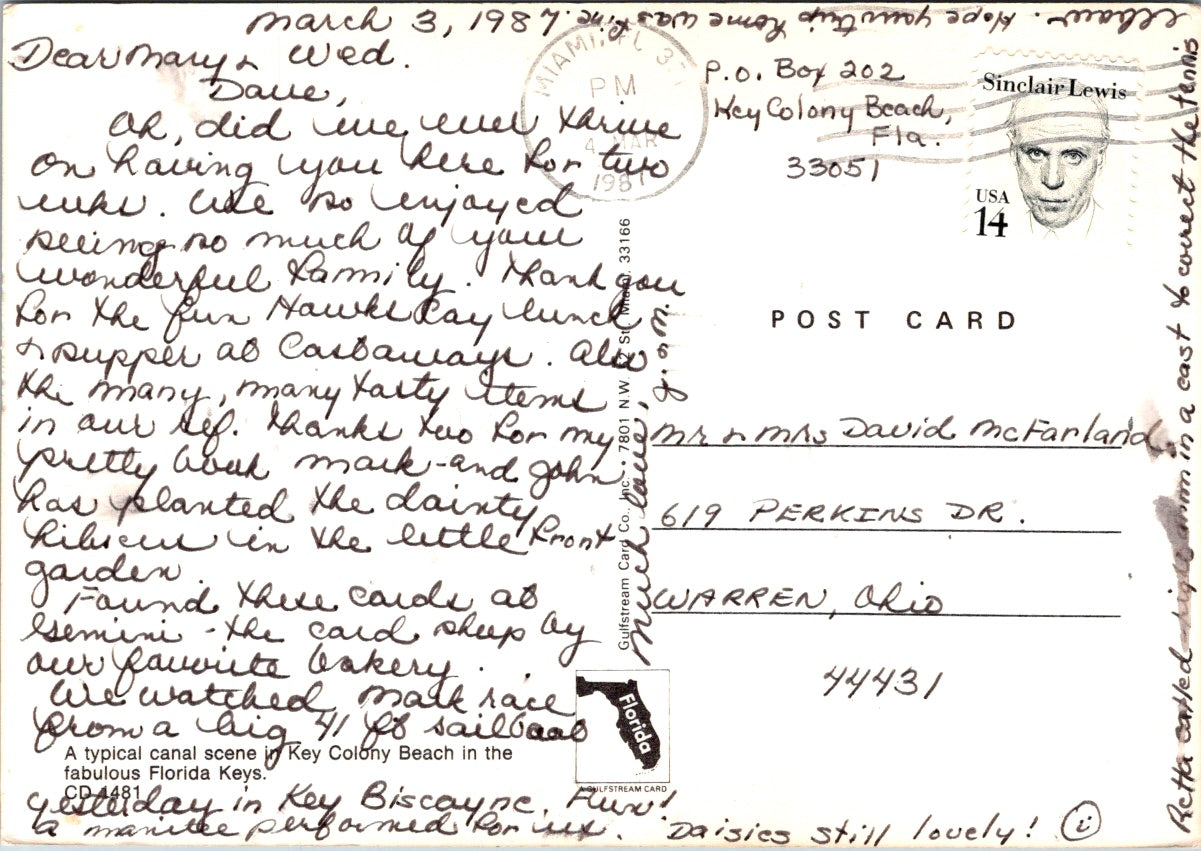 March 3, 1987
Wed.
Dear Mary &
Dave,
Oh, did we ever thrive
on having you here for two
weeks. We so enjoyed
seeing so much of your
wonderful family. Thank you
for the fun Hawks Cay lunch
& supper at Castaways. Also
the many, many tasty items
in our ref. Thanks too for my
pretty book mark - and John
has planted the dainty
hibiscus in the little front
garden.
Found these cards at
Gemini - the card shop by
our favorite bakery.
We watched Mark race
from a big 41 ft sailboat
yesterday in Key Biscayne. Fun!
a manitee performed for us. Daisies still lovely! i
Much love, J. & M.
Retta called - right arm in a cast to correct the tennis
elbow. Hope your trip home was fine.
A typical canal scene in Key Colony Beach in the
fabulous Florida Keys.
CD 1481
Gulfstream Card Co., Inc. • 7801 N.W. St. Miami 33166
Florida
A GULFSTREAM CARD
MIAMI, FL
PM
4 MAR
1987
P.O. Box 202
Key Colony Beach,
Fla.
33051
Sinclair Lewis
USA
14
POST CARD
Mr & Mrs David McFarland
619 PERKINS DR.
WARREN, Ohio
44431